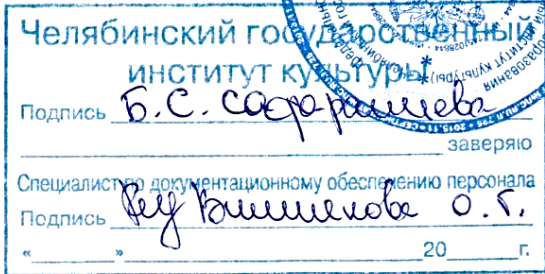 Челябинский государственный
институт культуры
Подпись Б.С. Сафаралиева
заверяю
Специалист по документационному обеспечению персонала
Подпись О.Г.
« » 20 г.